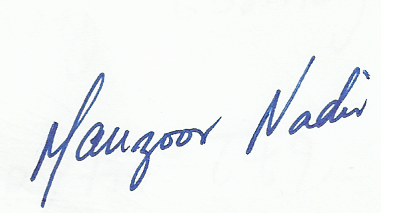 Manzoor Nadir